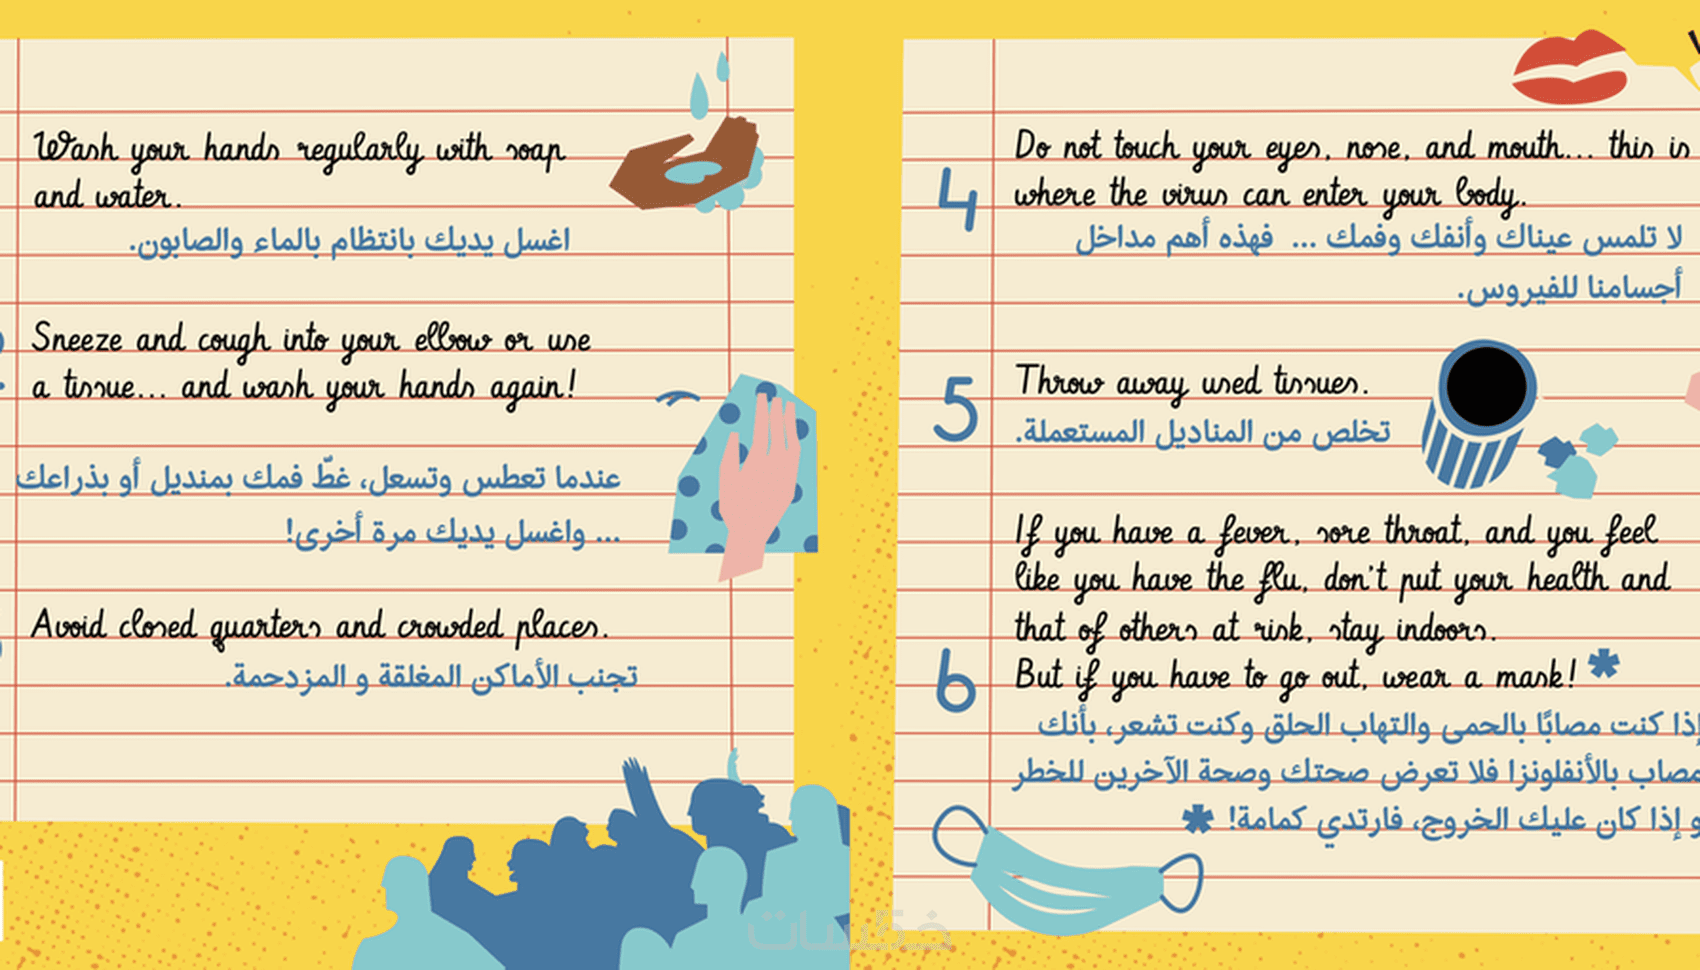 Wash your hands regularly with soap
and water.
اغسل يديك بانتظام بالماء والصابون.
Sneeze and cough into your elbow or use
a tissue... and wash your hands again!
عندما تعطس وتسعل، غطّ فمك بمنديل أو بذراعك
... واغسل يديك مرة أخرى!
Avoid closed quarters and crowded places.
تجنب الأماكن المغلقة و المزدحمة.
4
Do not touch your eyes, nose, and mouth... this is
where the virus can enter your body.
لا تلمس عيناك وأنفك وفمك ... فهذه أهم مداخل
أجسامنا للفيروس.
5
Throw away used tissues.
تخلص من المناديل المستعملة.
6
If you have a fever, sore throat, and you feel
like you have the flu, don't put your health and
that of others at risk, stay indoors.
But if you have to go out, wear a mask! *
إذا كنت مصابًا بالحمى والتهاب الحلق وكنت تشعر، بأنك
مصاب بالأنفلونزا فلا تعرض صحتك وصحة الآخرين للخطر
و إذا كان عليك الخروج، فارتدي كمامة! *
خمسات